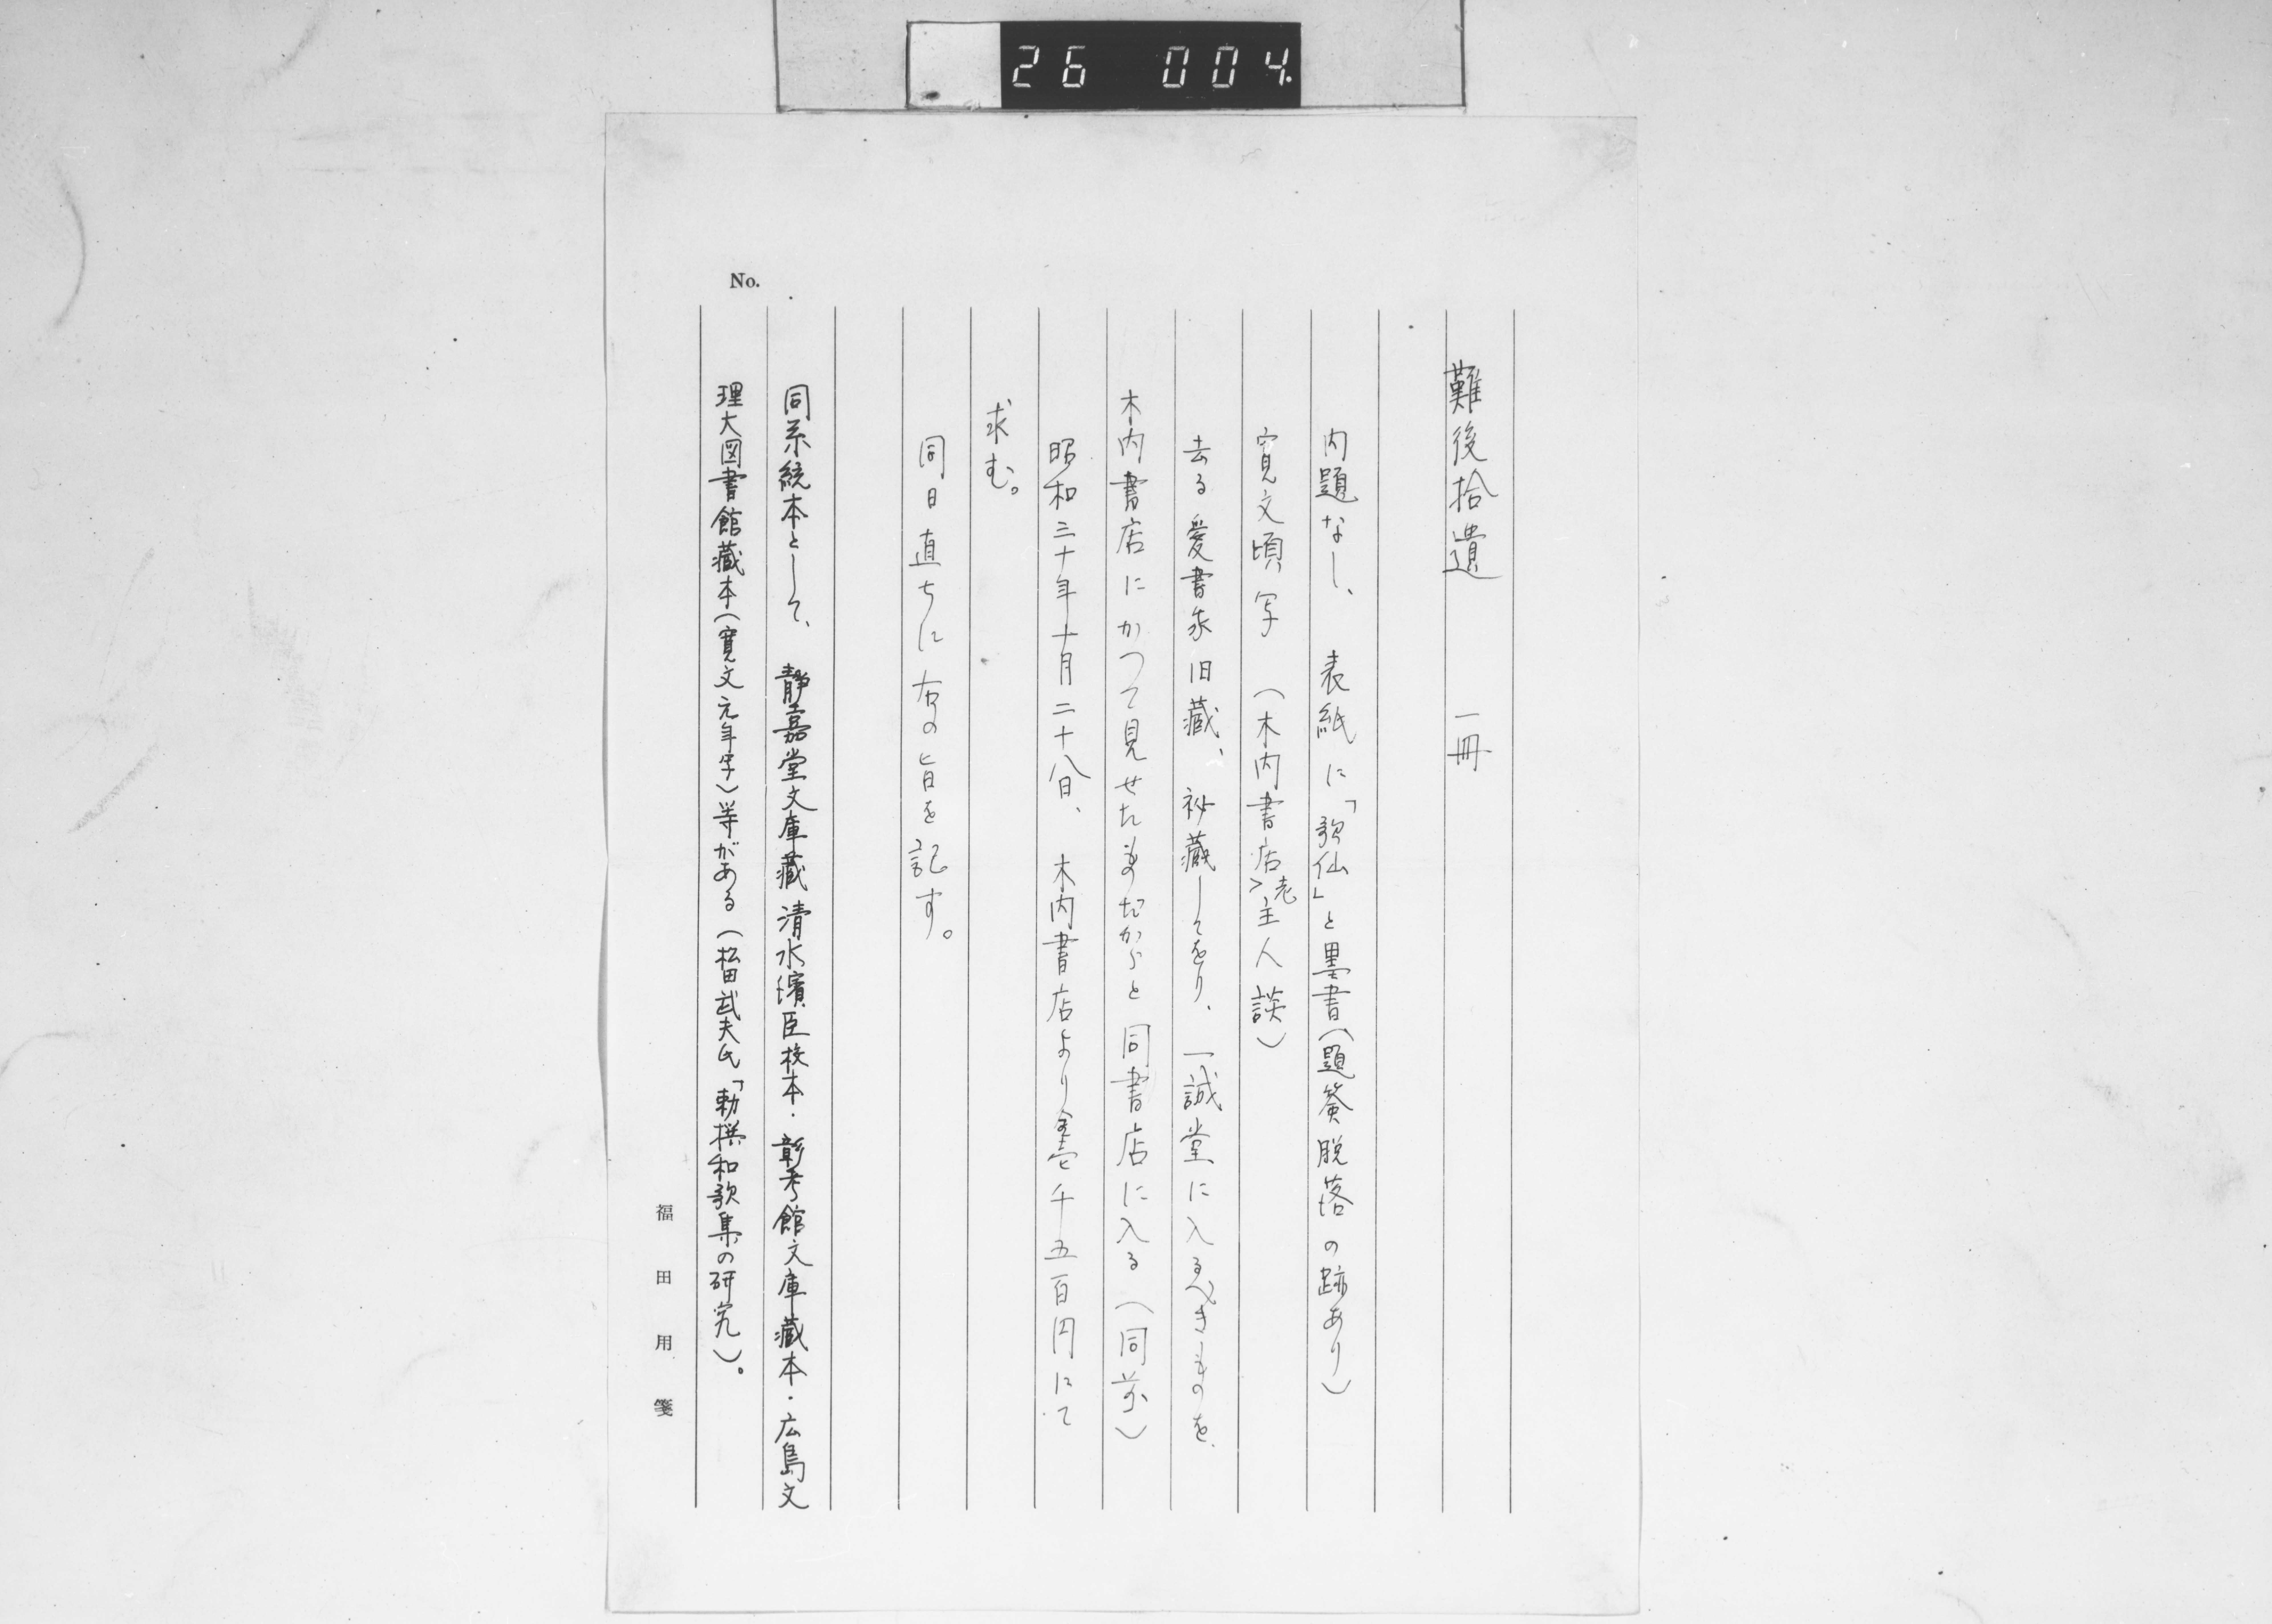 26 004.
No.
難後拾遺　一冊
内題なし、表紙に「歌仙」と墨書(題簽脱落の跡あり)
寛文頃写　(木内書店老主人談)
去る愛書家旧蔵、秘蔵してをり、一誠堂に入るべきものを
木内書店にかつて見せたものだからと同書店に入る(同前)
昭和三十年十月二十八日、木内書店より金壱千五百円にて
求む。
同日直ちに右の旨を記す。
同系統本として、静嘉堂文庫蔵清水濱臣校本・彰考館文庫蔵本・広島文
理大図書館蔵本(寛文元年写)等がある(松田武夫氏「勅撰和歌集の研究」)。
福田用箋